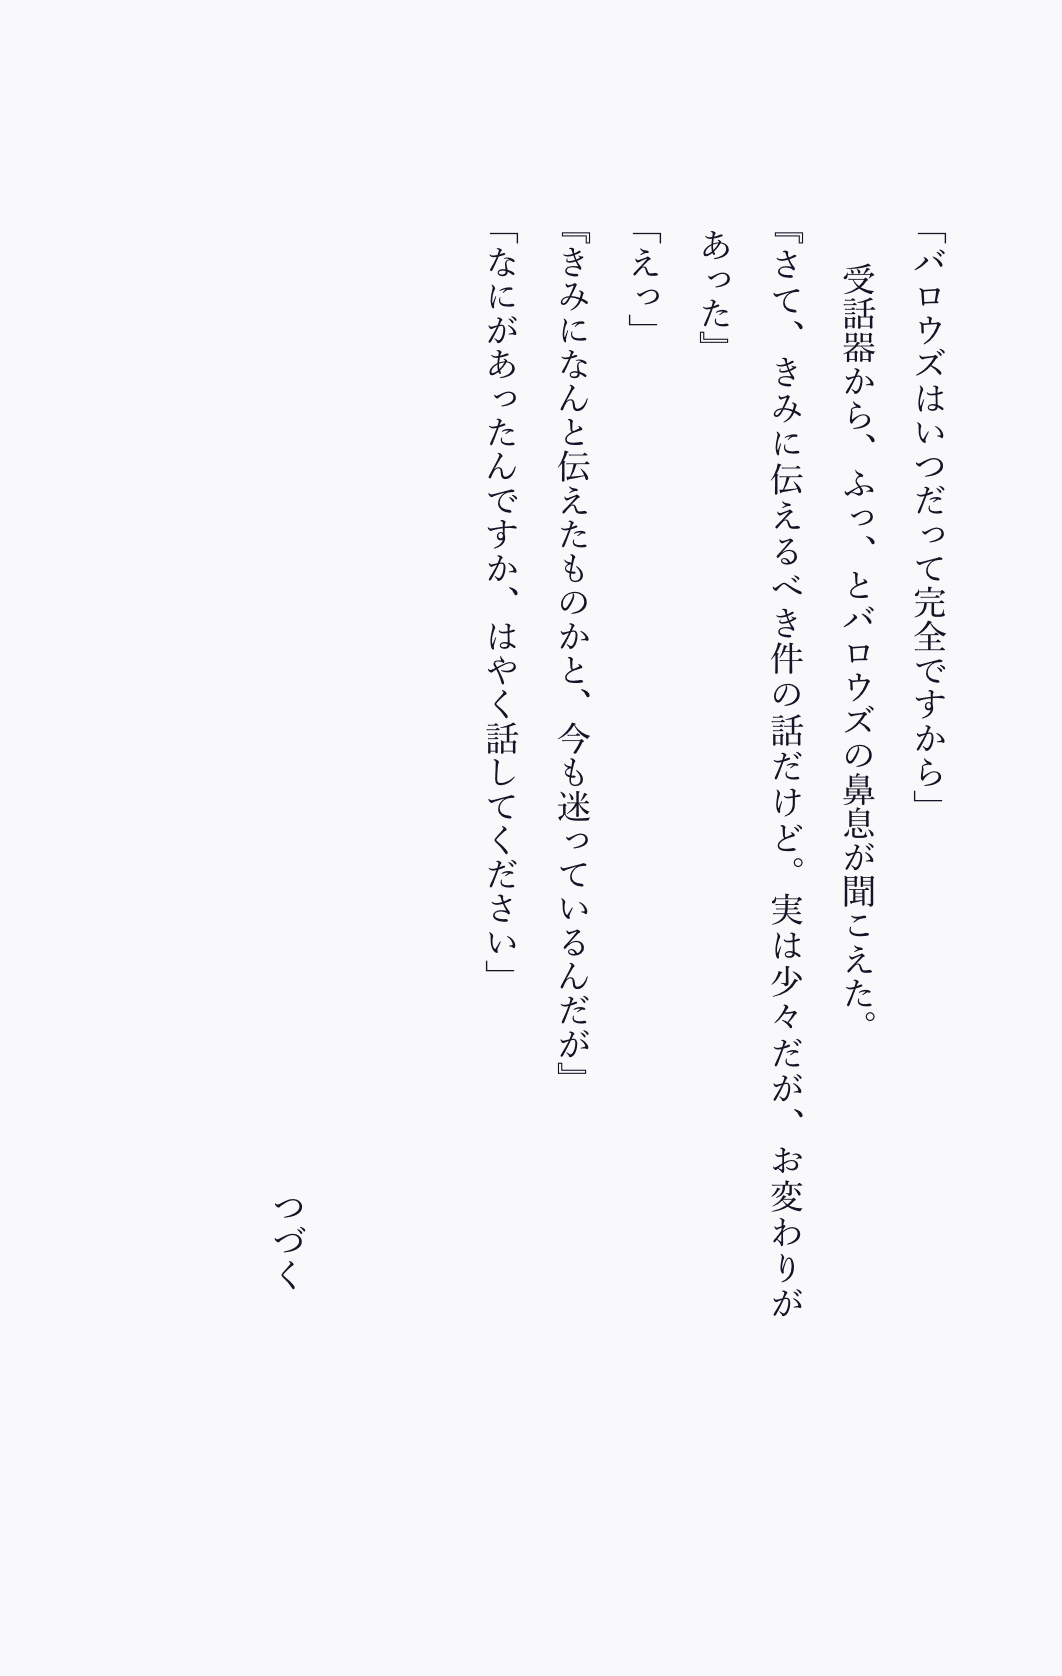 「バロウズはいつだって完全ですから」
　受話器から、ふっ、とバロウズの鼻息が聞こえた。
『さて、きみに伝えるべき件の話だけど。実は少々だが、お変わりが
あった』
「えっ」
『きみになんと伝えたものかと、今も迷っているんだが』
「なにがあったんですか、はやく話してください」
つづく